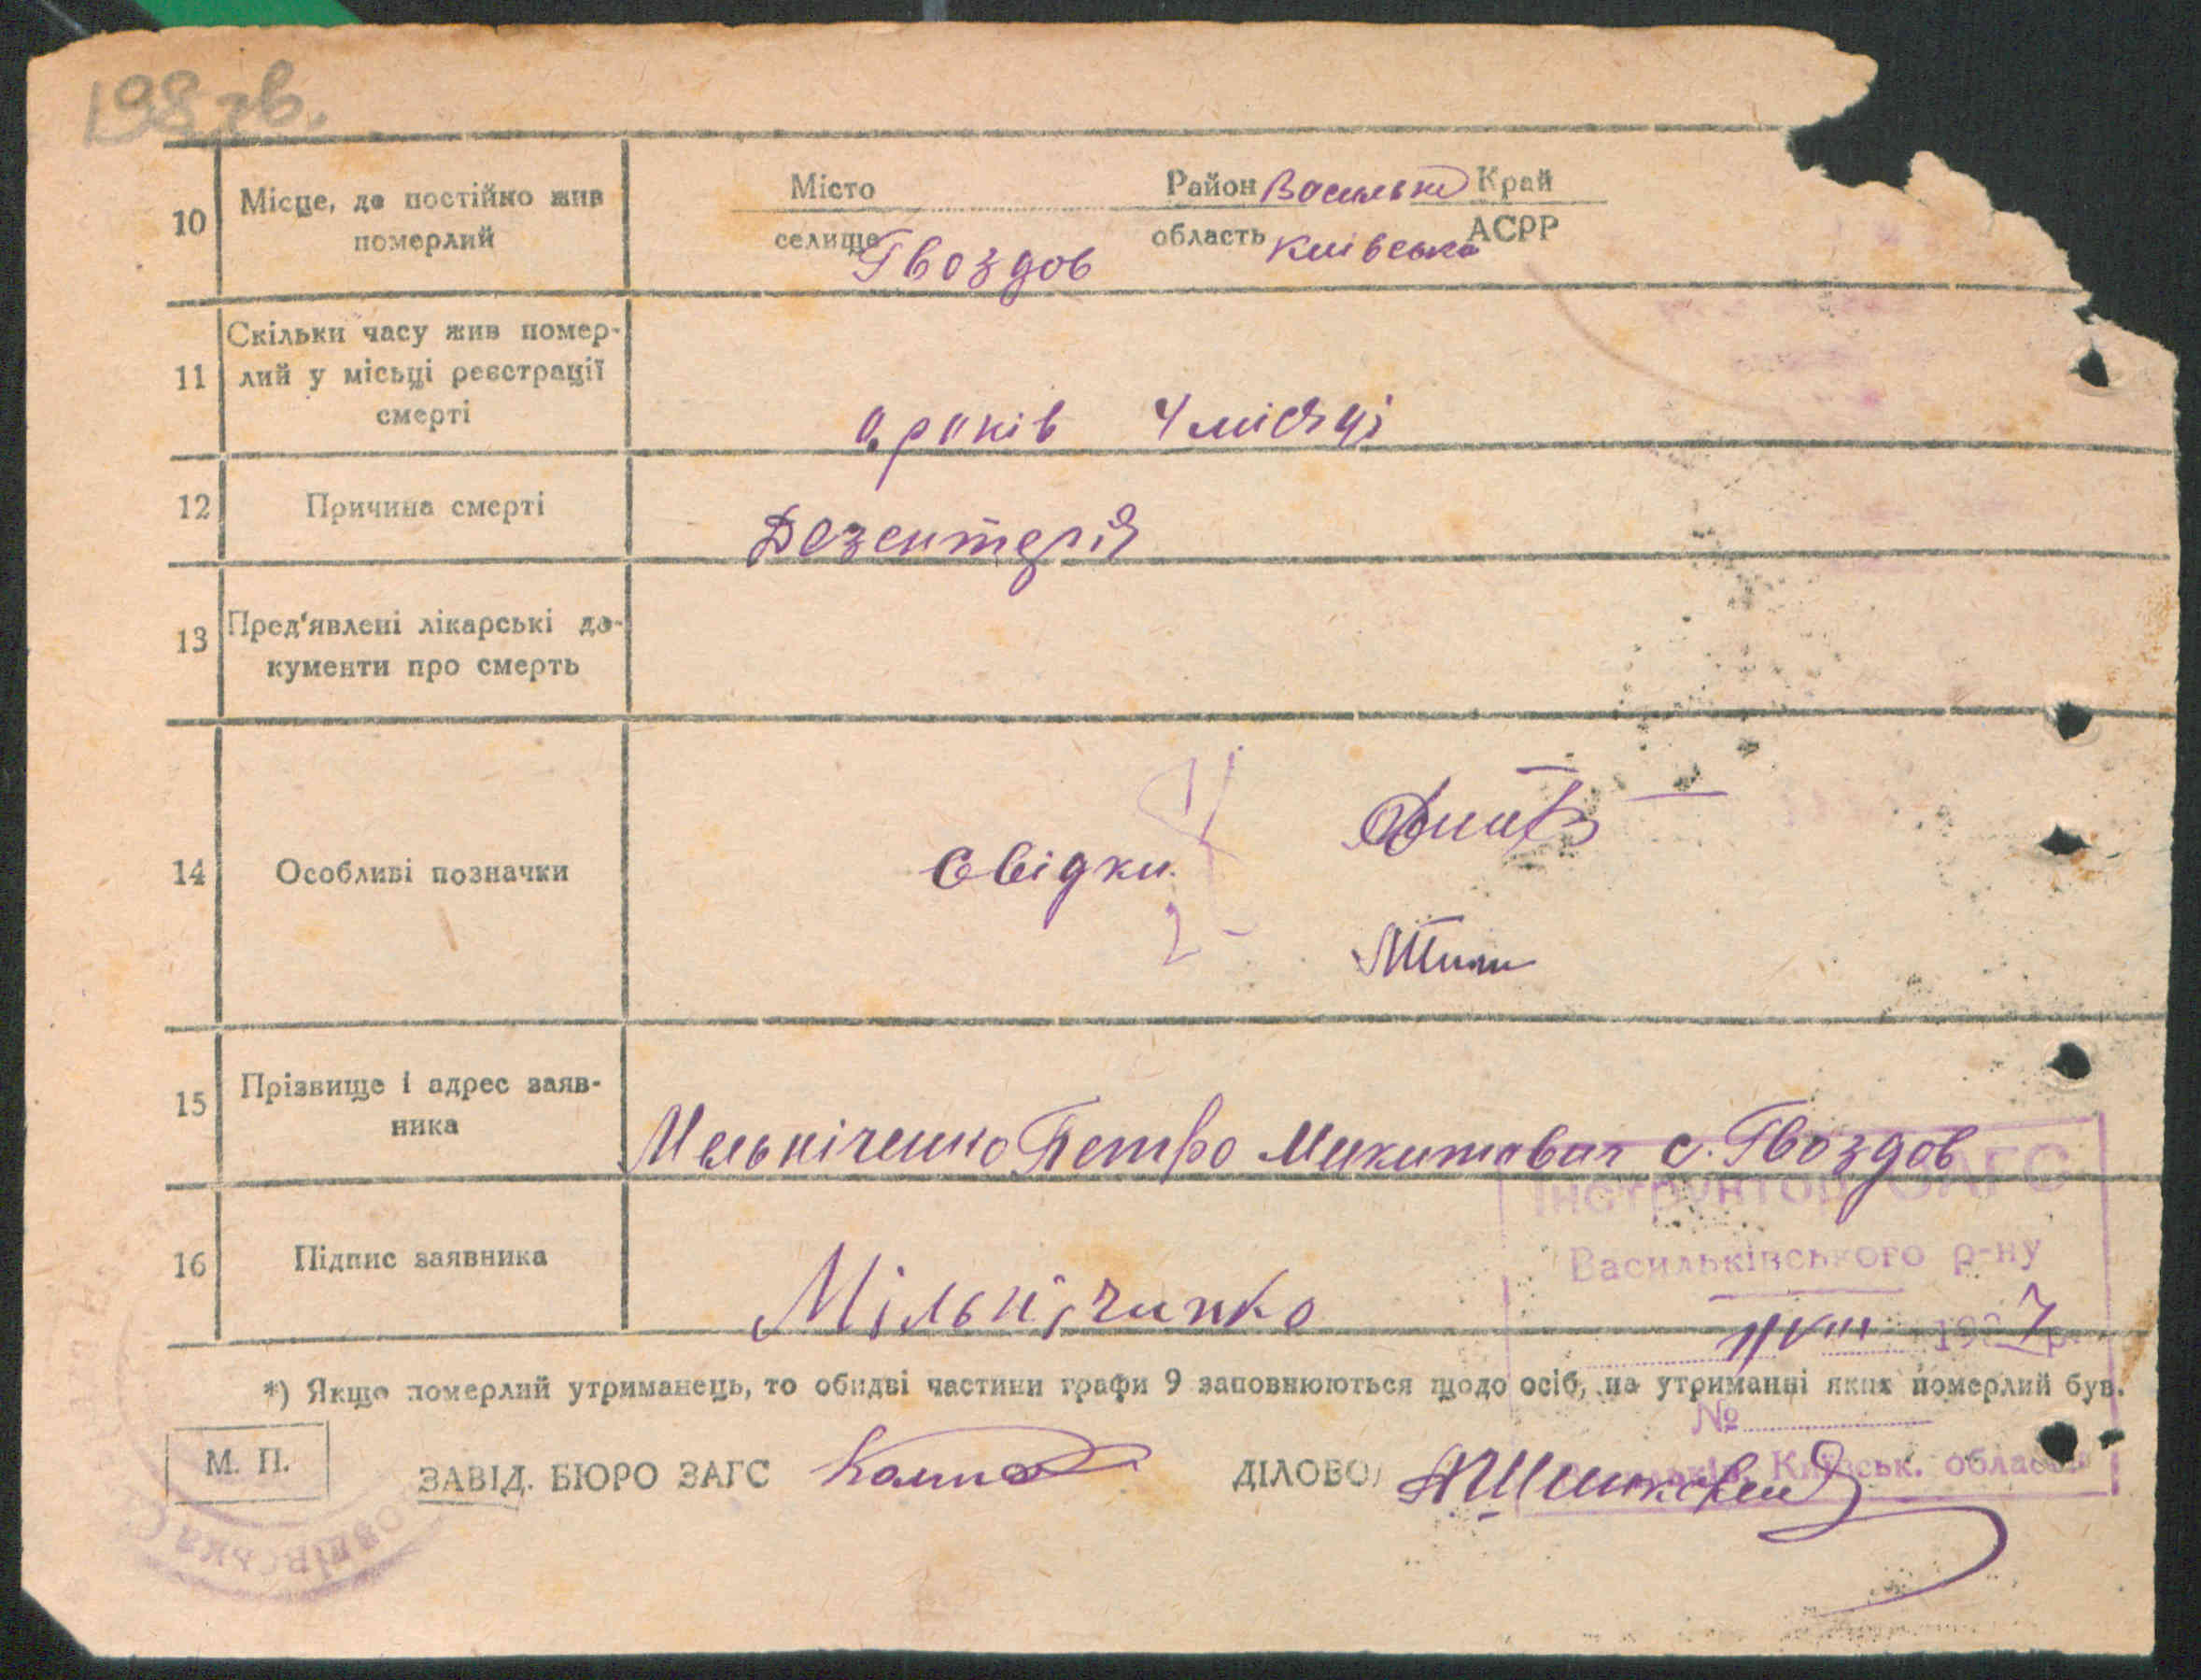 198 зв.
10 Місце, де постійно жив померлий
Місто Район Васильк Край
селище Гвоздов область Київська АСРР
11 Скільки часу жив помер-
лий у місьці реєстрації
смерті
0 років 4 місяці
12 Причина смерті Дезентерія
13 Пред'явлені лікарські до-
кументи про смерть
14 Особливі позначки
Свідки
1
2 -
15 Прізвище і адрес заяв-
ника
Мельніченко Петро Микитович с. Гвоздов
16 Підпис заявника Мільнічинко
Інструктор ЗАГС
Васильківського р-ну
11/VIII 1937 р.
*) Якщо померлий утриманець, то обидві частини графи 9 заповнюються щодо осіб, на утриманні яких померлий був.
№
Київськ. області
М. П. ЗАВІД. БЮРО ЗАГС ДІЛОВОД